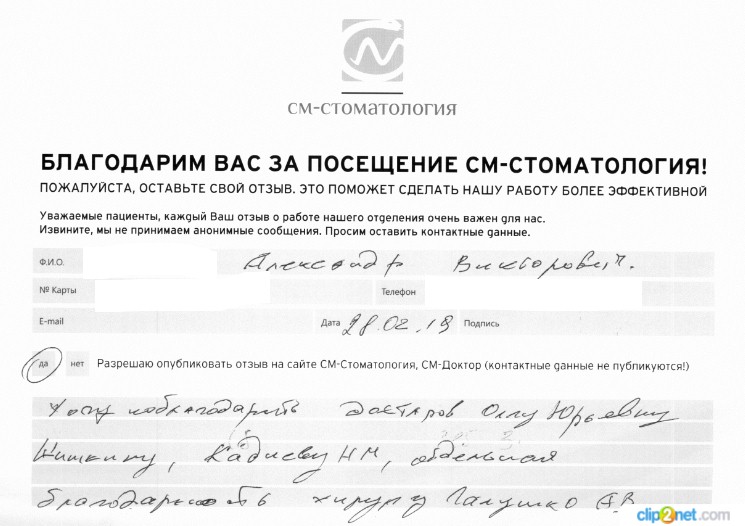 СМ-СТОМАТОЛОГИЯ
БЛАГОДАРИМ ВАС ЗА ПОСЕЩЕНИЕ СМ-СТОМАТОЛОГИЯ!
ПОЖАЛУЙСТА, ОСТАВЬТЕ СВОЙ ОТЗЫВ. ЭТО ПОМОЖЕТ СДЕЛАТЬ НАШУ РАБОТУ БОЛЕЕ ЭФФЕКТИВНОЙ
Уважаемые пациенты, каждый Ваш отзыв о работе нашего отделения очень важен для нас.
Извините, мы не принимаем анонимные сообщения. Просим оставить контактные данные.
Ф.И.О. Александр Викторович.
№ Карты Телефон
E-mail Дата 28.02.19 Подпись
да нет Разрешаю опубликовать отзыв на сайте СМ-Стоматология, СМ-Доктор (контактные данные не публикуются!)
Хочу поблагодарить докторов Ольгу Юрьевну
Шишкину, Кадиеву НМ, отдельная
благодарность хирургу Галушко АВ
clip2net.com